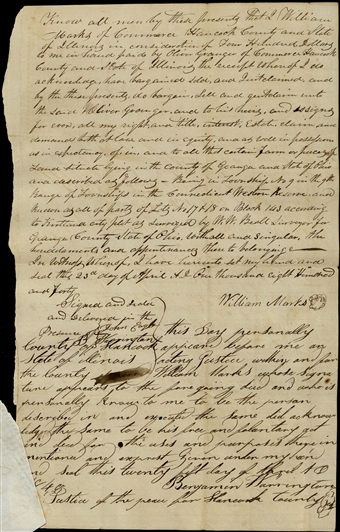 Know all men by these presents that I William
Marks of Commerce Hancock County and State
of Illinois in consideration of Four Hundred Dollars
to me in hand paid by Oliver Granger of Commerce Hancock
County and State of Illinois, the receipt whereof I do
acknowledge, have bargained sold, and quitclaimed, and
by the these presents, do bargain, sell and quitclaim unto
the said Oliver Granger, and to his heirs, and assigns
for ever, all my right, and title, interest, Estate, claim, and
demands both at Law and in equity, and as well in possession
as in expectancy, of, in and to all that certain farm or piece of
Land situate lying in the County of Geauga, and State of Ohio
and described as follows, being in Township No 9 in the 9th
Range of Townships in the Connecticut Western Reserve and
known as all of parts of Lots No 17 & 18 on Block 143 according
to Kirtland city plat as surveyed by
Geauga County State of Ohio, with all and singular, the
hereditaments and appurtenances there to belonging
In witness whereof, I have hereunto set my hand and
seal this 23d day of April A. D. One thousand eight Hundred
and forty
William Marks
Signed and sealed
and delivered in the
Presence of
this Day personally
County of Hancock appeared before me an
State of Illinois acting Justice within and for
the County William Marks whose signa
ture appears to the foregoing deed and who is
personally known to me to be the person
described in and executed the same did acknow
ledg the same to be his free and voluntary act
and deed for the uses and purposes therein
mentioned and exprest Given under my han
and seal this twenty day of April AD
Benjamin Warrington
Justice of the peace for Hancock County